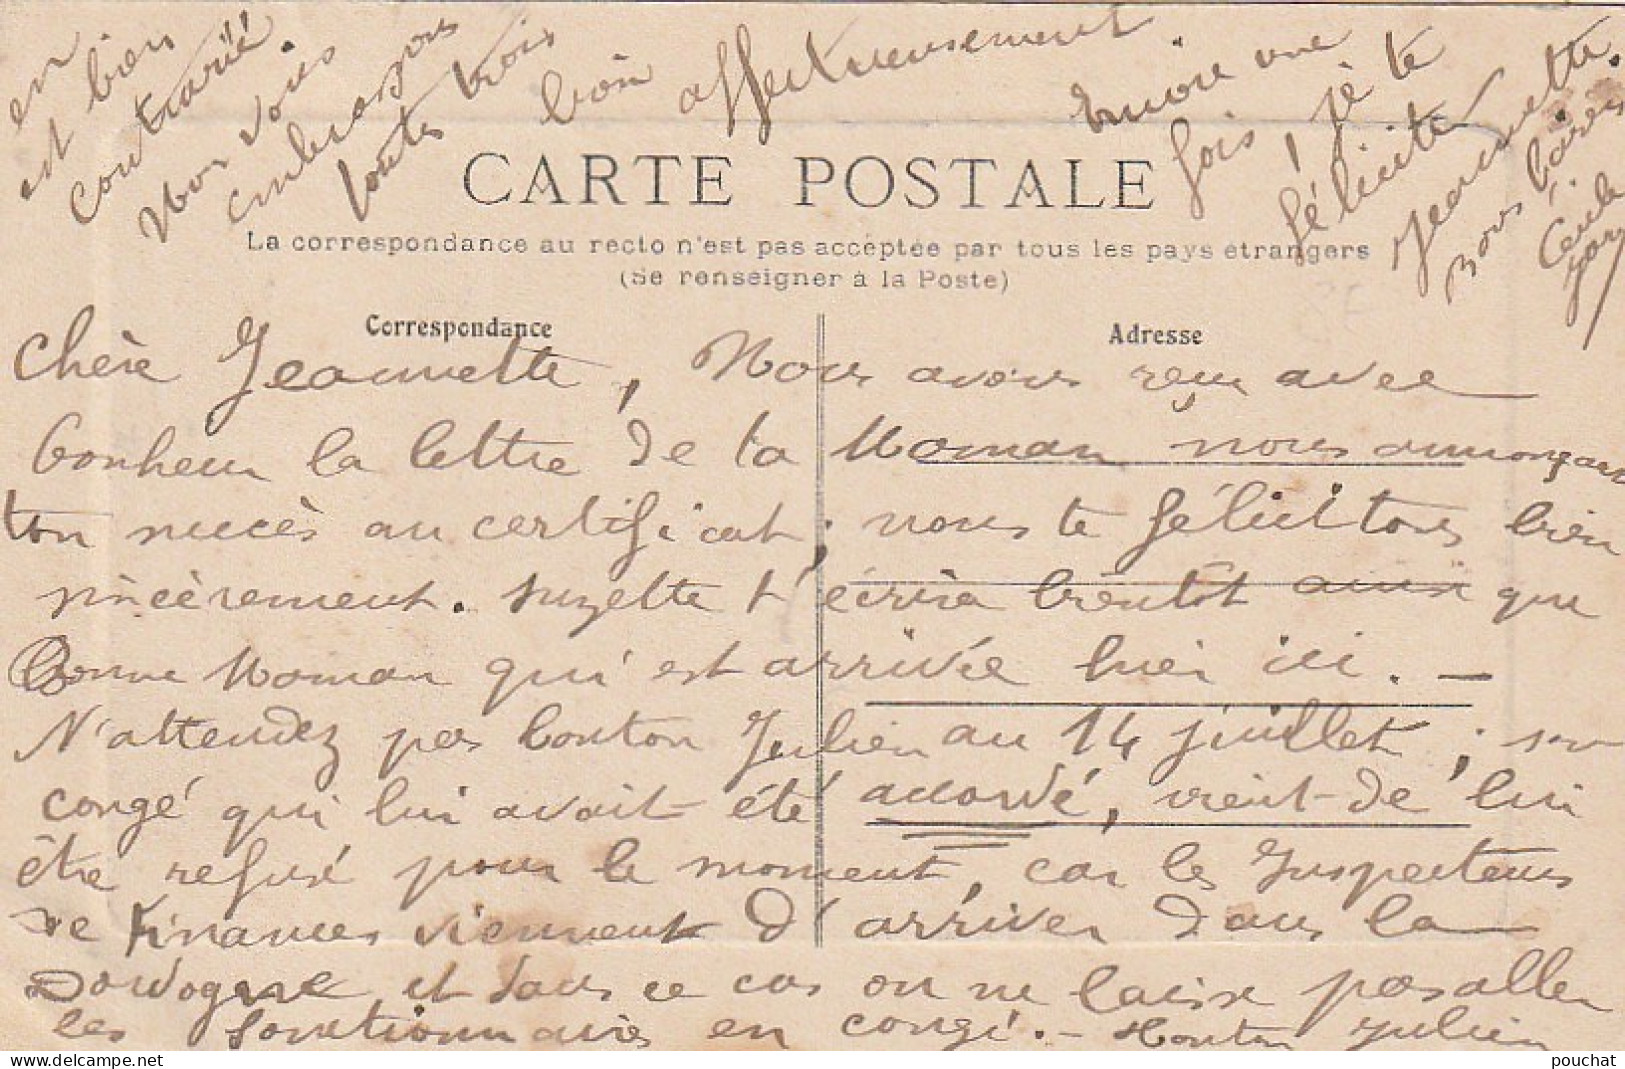 CARTE POSTALE
La correspondance au recto n'est pas acceptée par tous les pays étrangers
(Se renseigner à la Poste)
Correspondance
Adresse
Chère Jeannette, Nous avons reçu avec
bonheur la lettre de ta Maman nous annonçant
ton succès au certificat; nous te félicitons bien
sincèrement. Suzette t'écrira bientôt ainsi que
bonne Maman qui est arrivée hier ici. —
N'attendez pas tonton Julien au 14 juillet; son
congé qui lui avait été accordé, vient de lui
être refusé pour le moment, car les Inspecteurs
de Finances viennent d'arriver dans la
Dordogne et dans ce cas on ne laisse pas aller
les fonctionnaires en congé. — Tonton Julien
en
est bien
contrarié.
Nous vous
embrassons
toutes trois
bien affectueusement
Encore une
fois, je te
félicite
Jeannette.
Bons baisers.